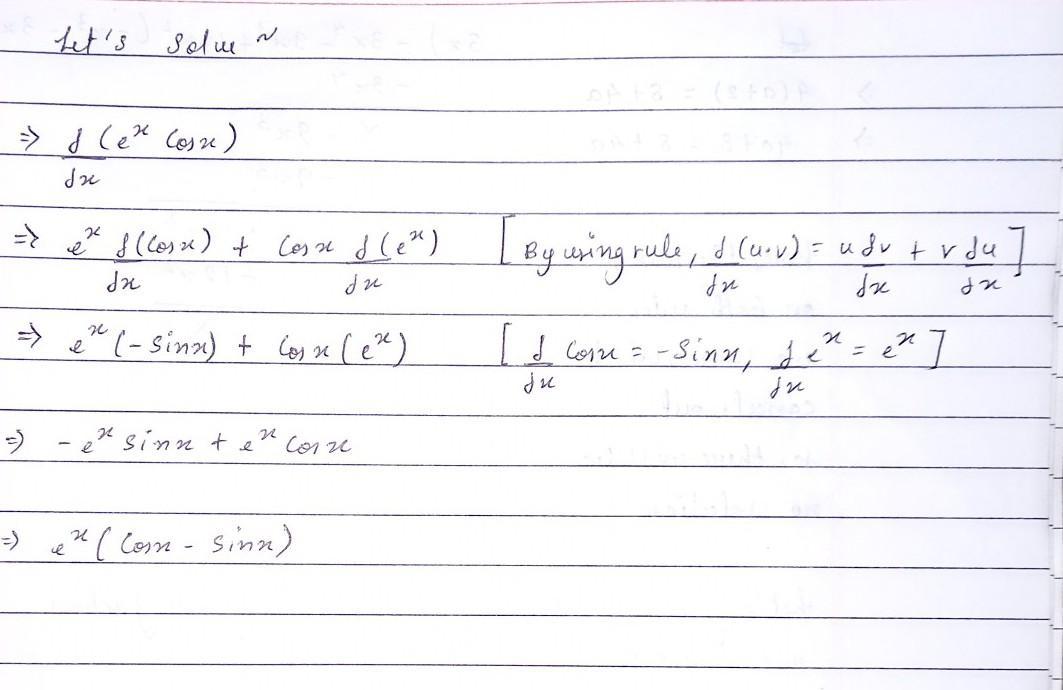 Let's Solve ~
⇒ d/dx (e^x Cosx)
⇒ e^x d(Cosx)/dx + Cosx d(e^x)/dx [By using rule, d(u·v)/dx = u dv/dx + v du/dx]
⇒ e^x (-Sinx) + Cosx (e^x) [d/dx Cosx = -Sinx, d/dx e^x = e^x]
⇒ -e^x sinx + e^x Cosx
⇒ e^x (Cosx - Sinx)